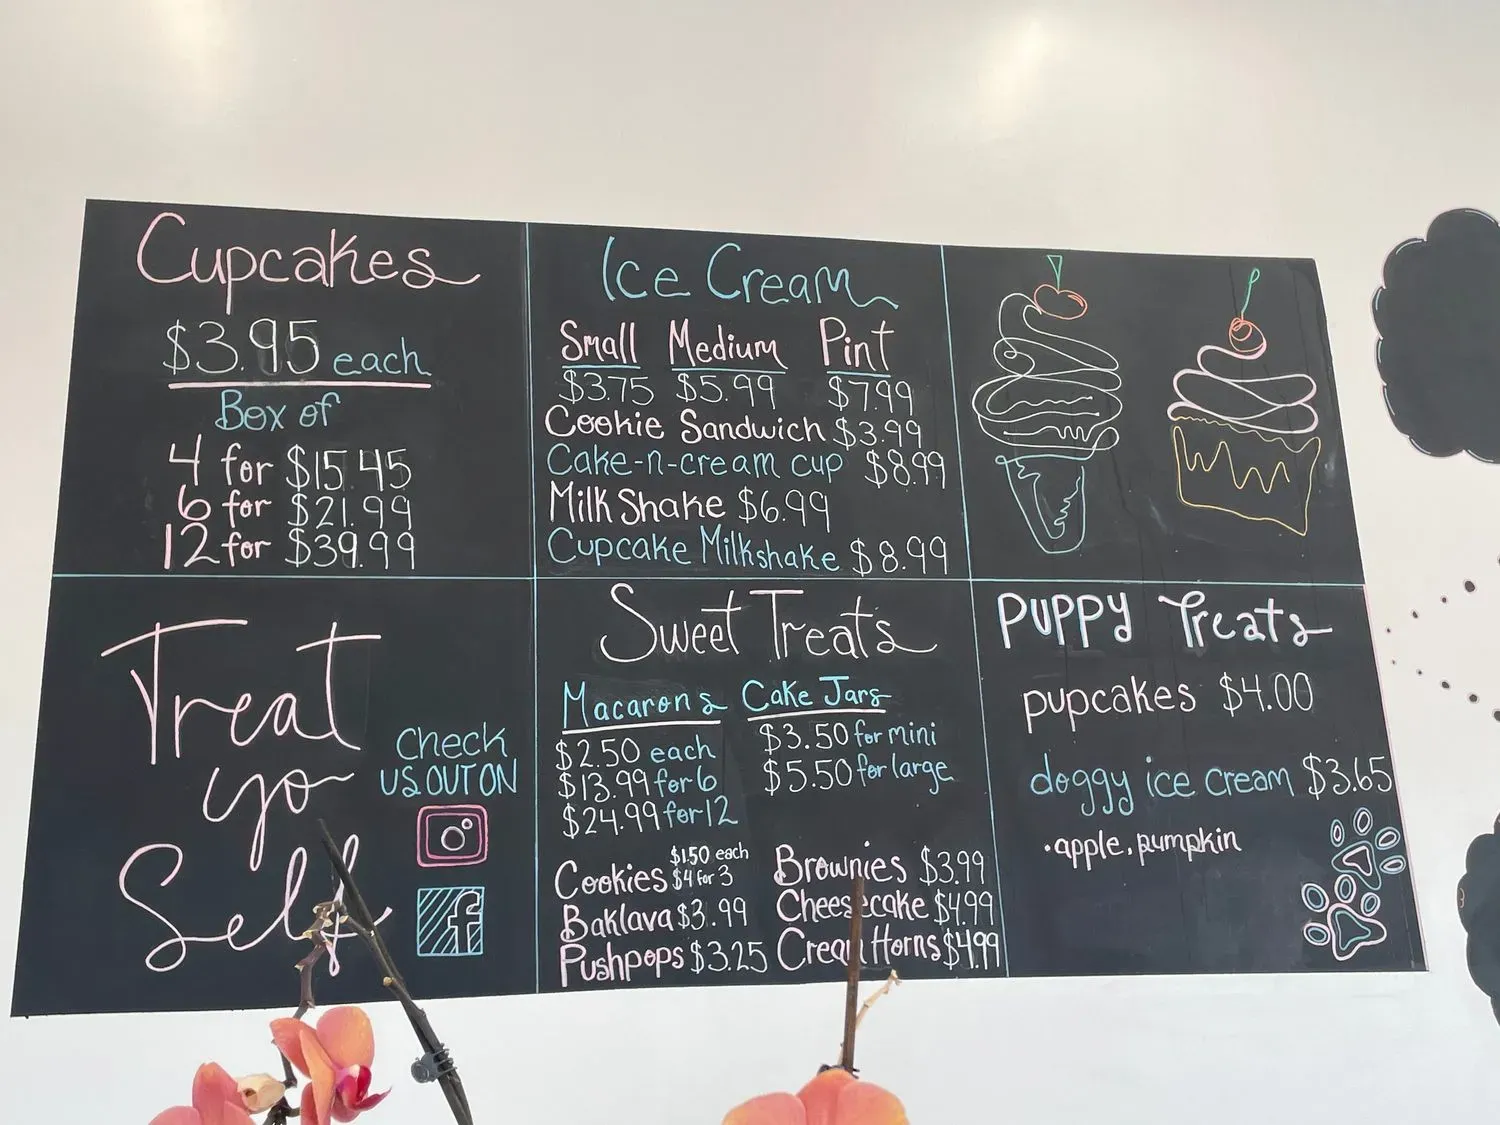 Cupcakes
$3.95 each
Box of
4 for $15.45
6 for $21.99
12 for $39.99
Ice Cream
Small Medium Pint
$3.75 $5.99 $7.99
Cookie Sandwich $3.99
Cake-n-cream cup $8.99
Milk Shake $6.99
Cupcake Milkshake $8.99
Treat
yo
Self
Check
US OUT ON
f
Sweet Treats
Macarons
$2.50 each
$13.99 for 6
$24.99 for 12
Cake Jars
$3.50 for mini
$5.50 for large
Cookies $1.50 each
$4 for 3
Baklava $3.99
Pushpops $3.25
Brownies $3.99
Cheesecake $4.99
Cream Horns $4.99
PUPPY Treats
pupcakes $4.00
doggy ice cream $3.65
•apple, pumpkin